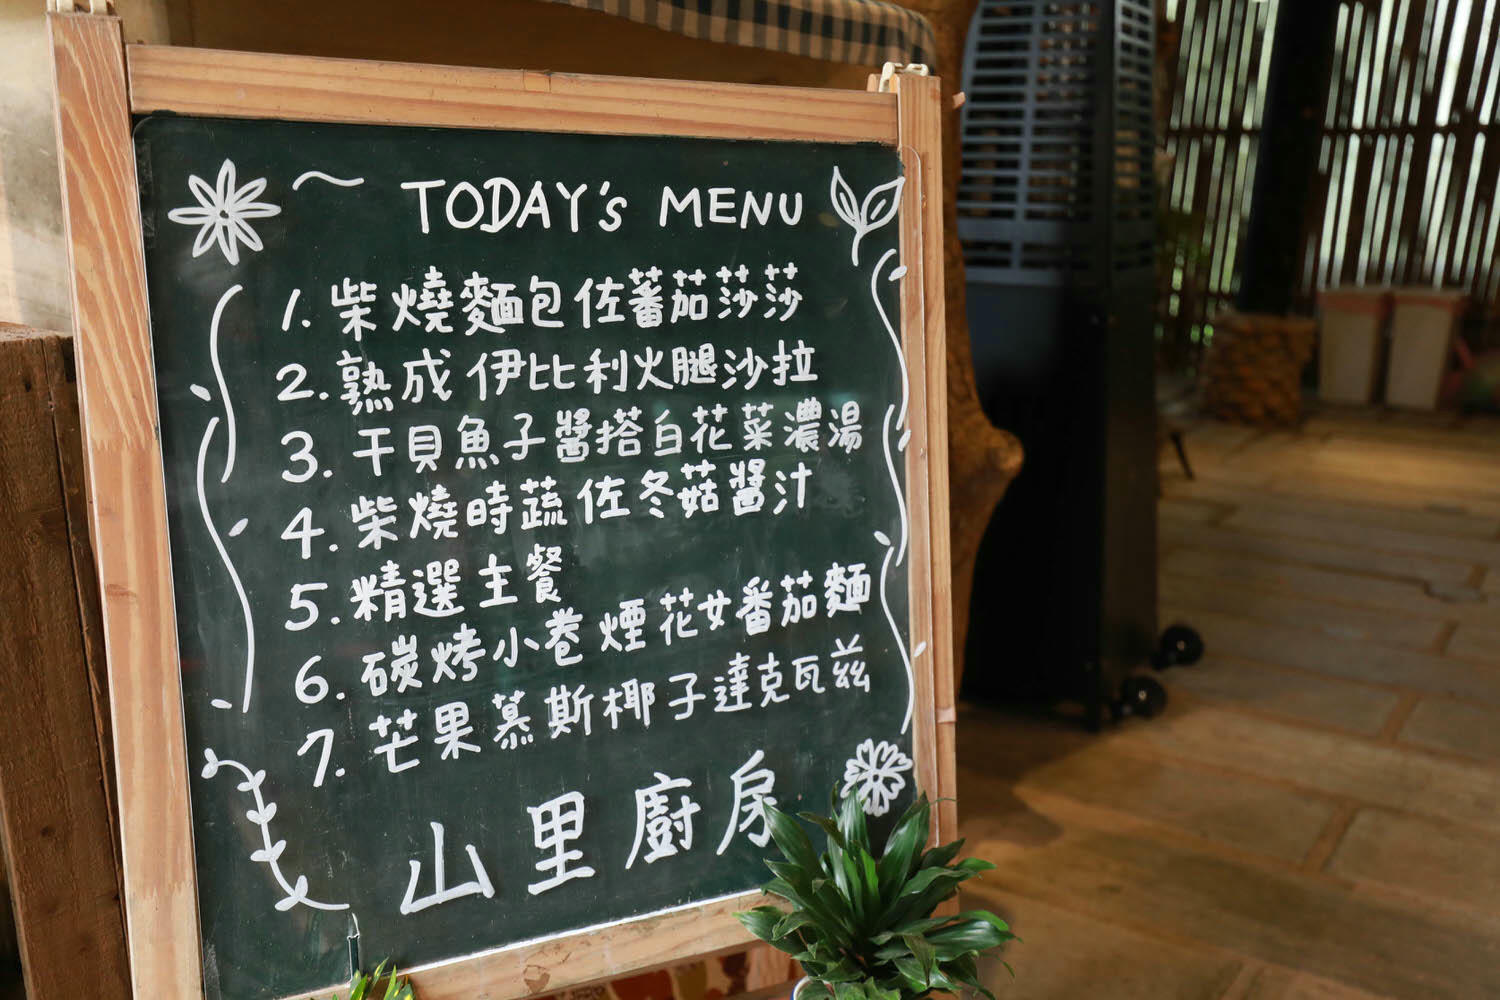 TODAY's MENU
1. 柴燒麵包佐蕃茄莎莎
2. 熟成伊比利火腿沙拉
3. 干貝魚子醬搭白花菜濃湯
4. 柴燒時蔬佐冬菇醬汁
5. 精選主餐
6. 碳烤小卷煙花女番茄麵
7. 芒果慕斯椰子達克瓦茲
山里廚房